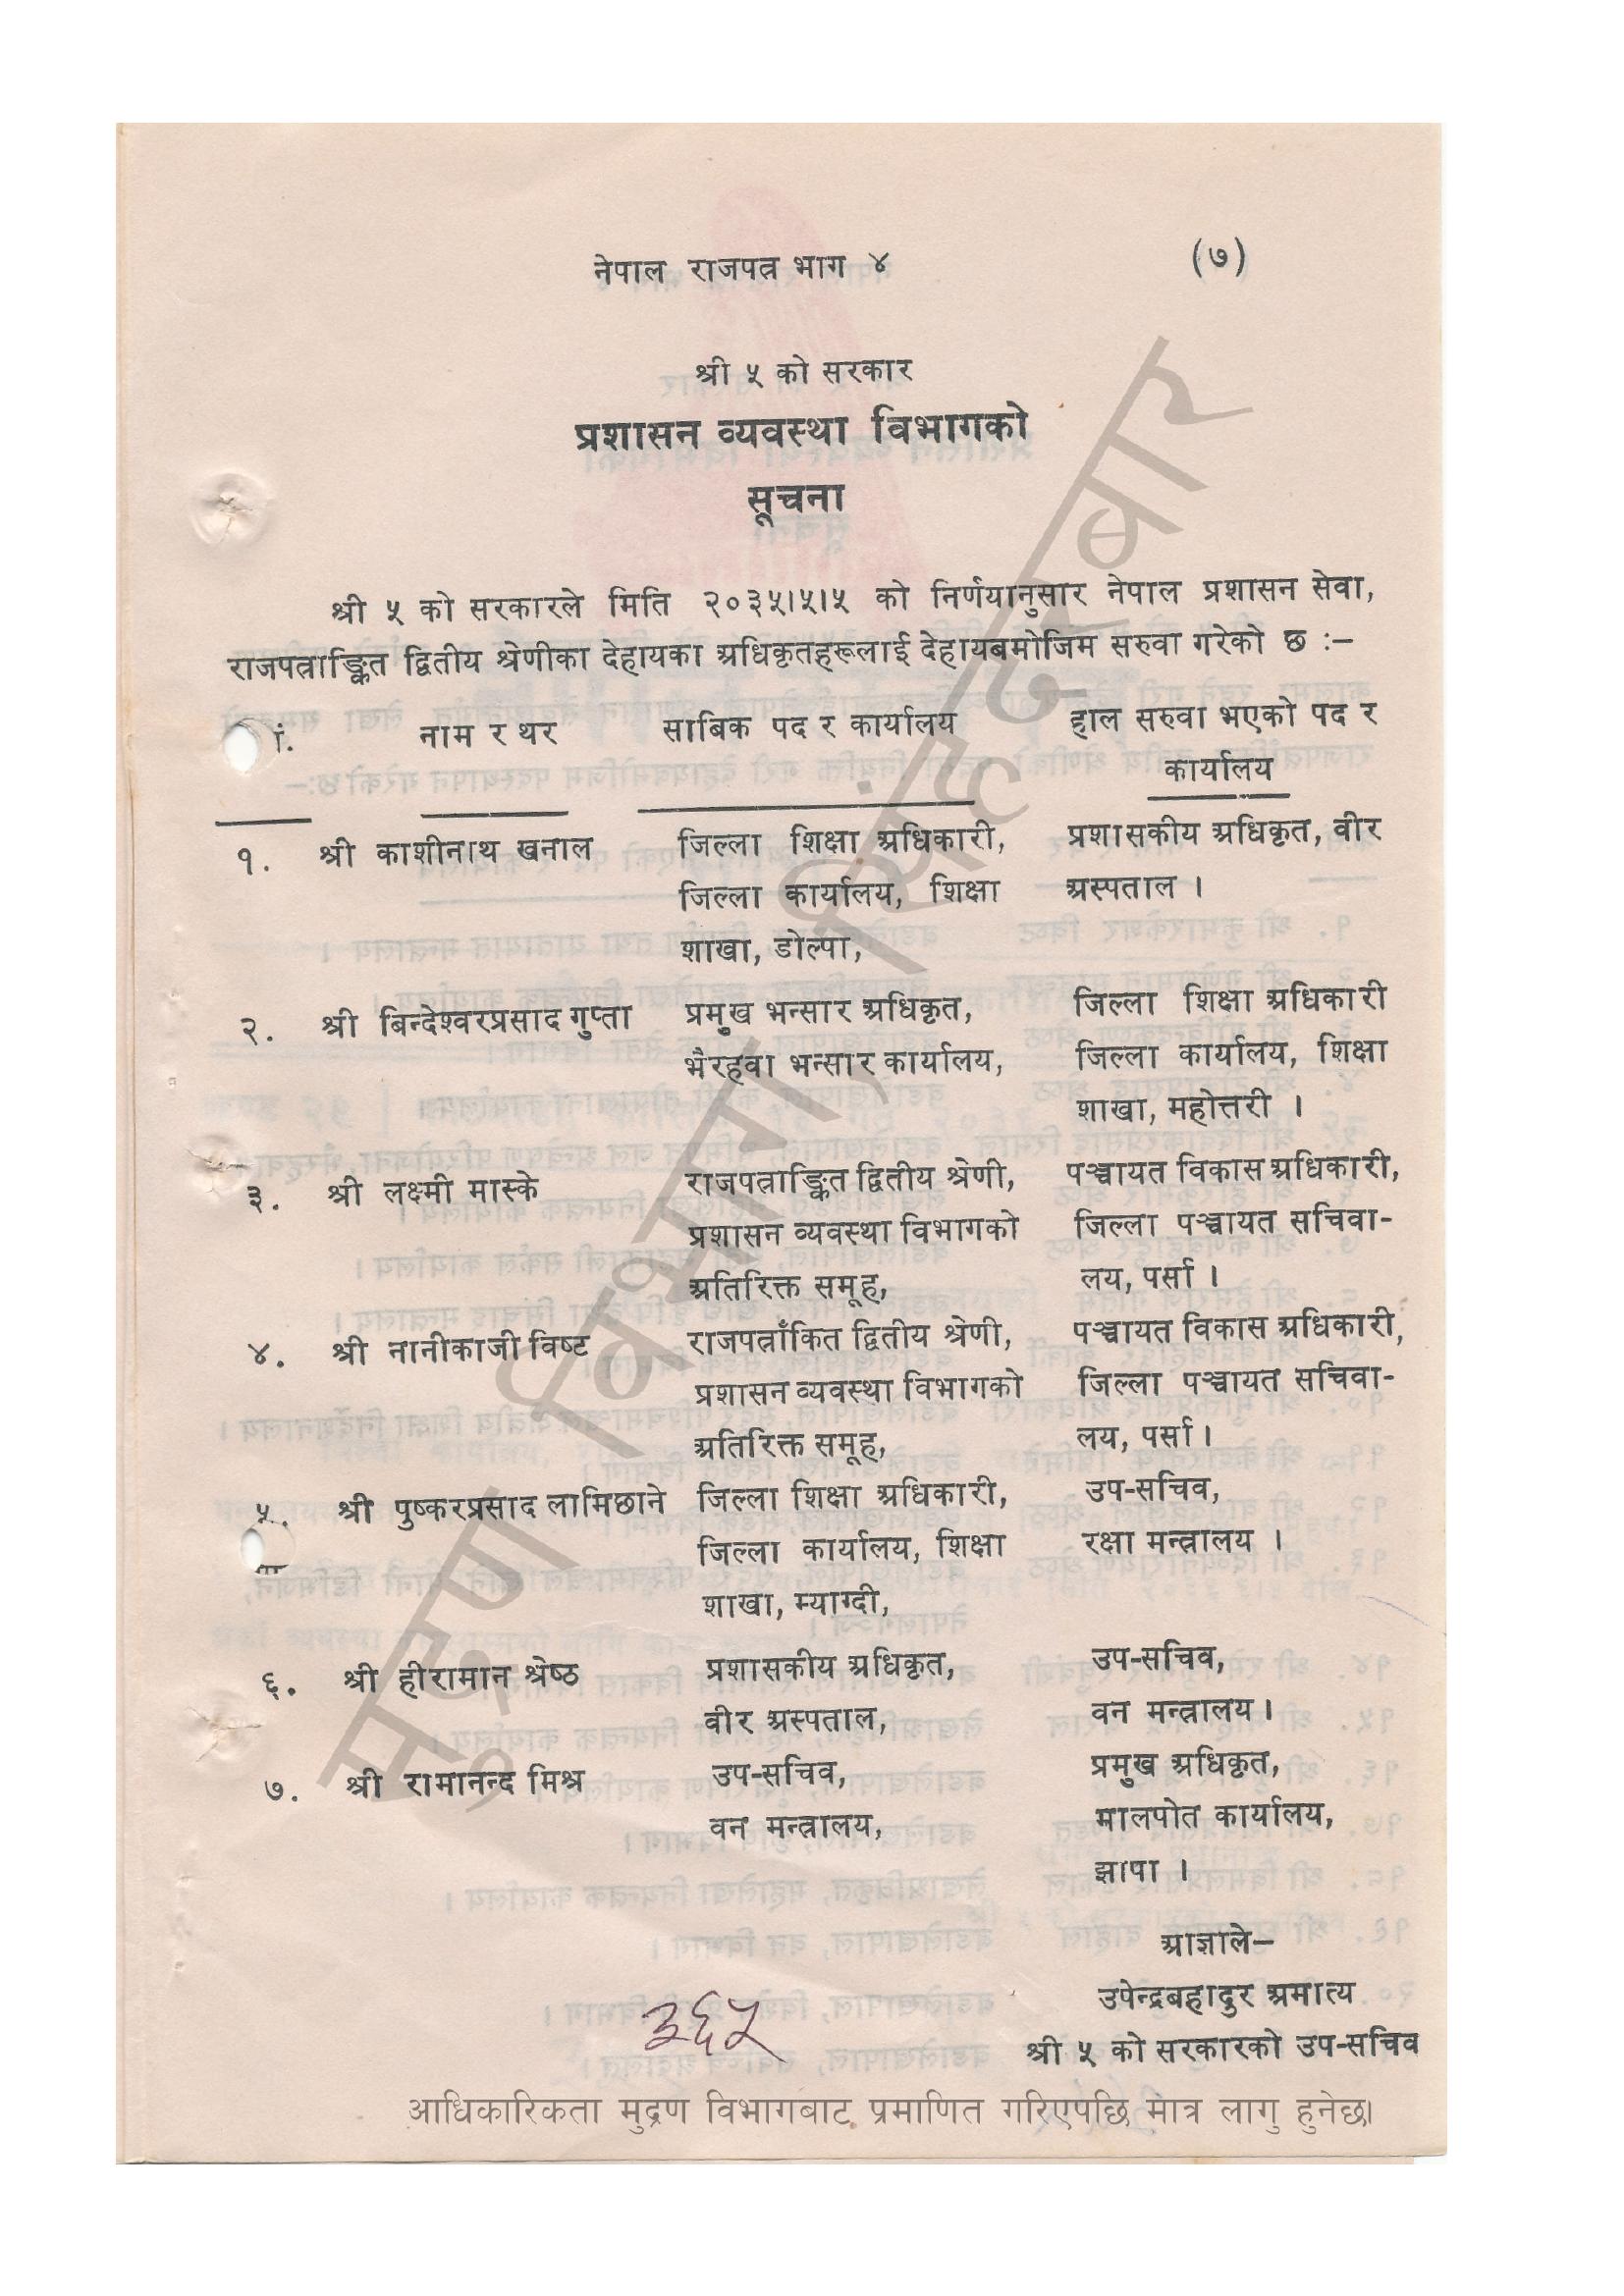 नेपाल राजपत्र भाग ४ (७)
श्री ५ को सरकार
प्रशासन व्यवस्था विभागको
सूचना
श्री ५ को सरकारले मिति २०३५।५।५ को निर्णयानुसार नेपाल प्रशासन सेवा,
राजपत्राङ्कित द्वितीय श्रेणीका देहायका अधिकृतहरूलाई देहायबमोजिम सरुवा गरेको छ :–
नाम र थर साबिक पद र कार्यालय हाल सरुवा भएको पद र
कार्यालय
१. श्री काशीनाथ खनाल जिल्ला शिक्षा अधिकारी, प्रशासकीय अधिकृत, वीर
जिल्ला कार्यालय, शिक्षा अस्पताल ।
शाखा, डोल्पा,
२. श्री बिन्देश्वरप्रसाद गुप्ता प्रमुख भन्सार अधिकृत, जिल्ला शिक्षा अधिकारी
भैरहवा भन्सार कार्यालय, जिल्ला कार्यालय, शिक्षा
शाखा, महोत्तरी ।
३. श्री लक्ष्मी मास्के राजपत्राङ्कित द्वितीय श्रेणी, पञ्चायत विकास अधिकारी,
प्रशासन व्यवस्था विभागको जिल्ला पञ्चायत सचिवा-
अतिरिक्त समूह, लय, पर्सा ।
४. श्री नानीकाजी विष्ट राजपत्राँकित द्वितीय श्रेणी, पञ्चायत विकास अधिकारी,
प्रशासन व्यवस्था विभागको जिल्ला पञ्चायत सचिवा-
अतिरिक्त समूह, लय, पर्सा ।
५. श्री पुष्करप्रसाद लामिछाने जिल्ला शिक्षा अधिकारी, उप-सचिव,
जिल्ला कार्यालय, शिक्षा रक्षा मन्त्रालय ।
शाखा, म्याग्दी,
६. श्री हीरामान श्रेष्ठ प्रशासकीय अधिकृत, उप-सचिव,
वीर अस्पताल, वन मन्त्रालय ।
७. श्री रामानन्द मिश्र उप-सचिव, प्रमुख अधिकृत,
वन मन्त्रालय, मालपोत कार्यालय,
झापा ।
आज्ञाले–
उपेन्द्रबहादुर अमात्य
श्री ५ को सरकारको उप-सचिव
३६५
आधिकारिकता मुद्रण विभागबाट प्रमाणित गरिएपछि मात्र लागु हुनेछ।
मुद्रण विभाग, सिंहदरबार